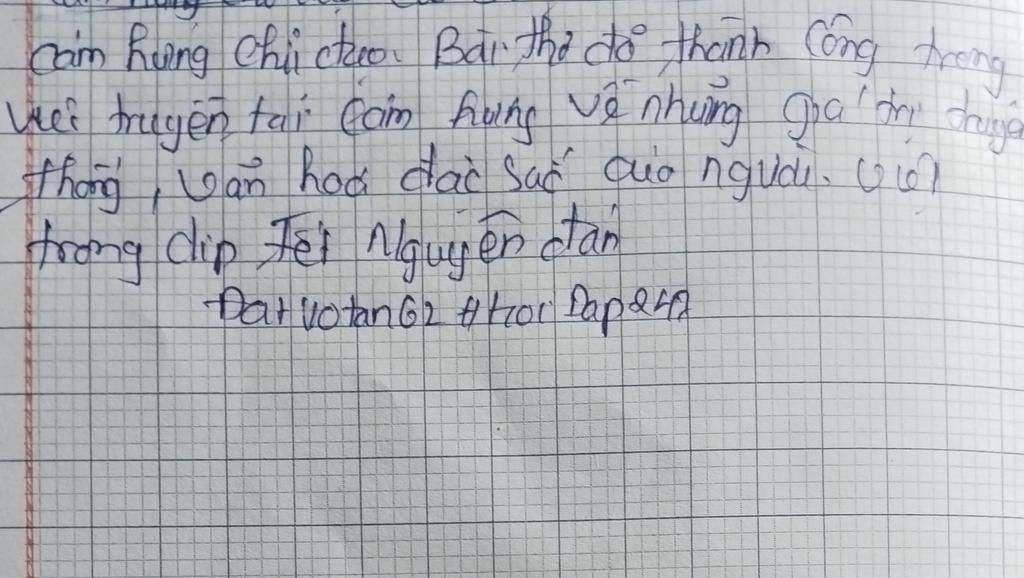 cảm hứng chủ đạo. Bài thơ đã thành công trong
việc truyền tải cảm hứng về những giá trị truyền
thống, văn hoá đặc sắc của người Việt
trong dịp Tết Nguyên đán
Datvotan62 #HoiDap247